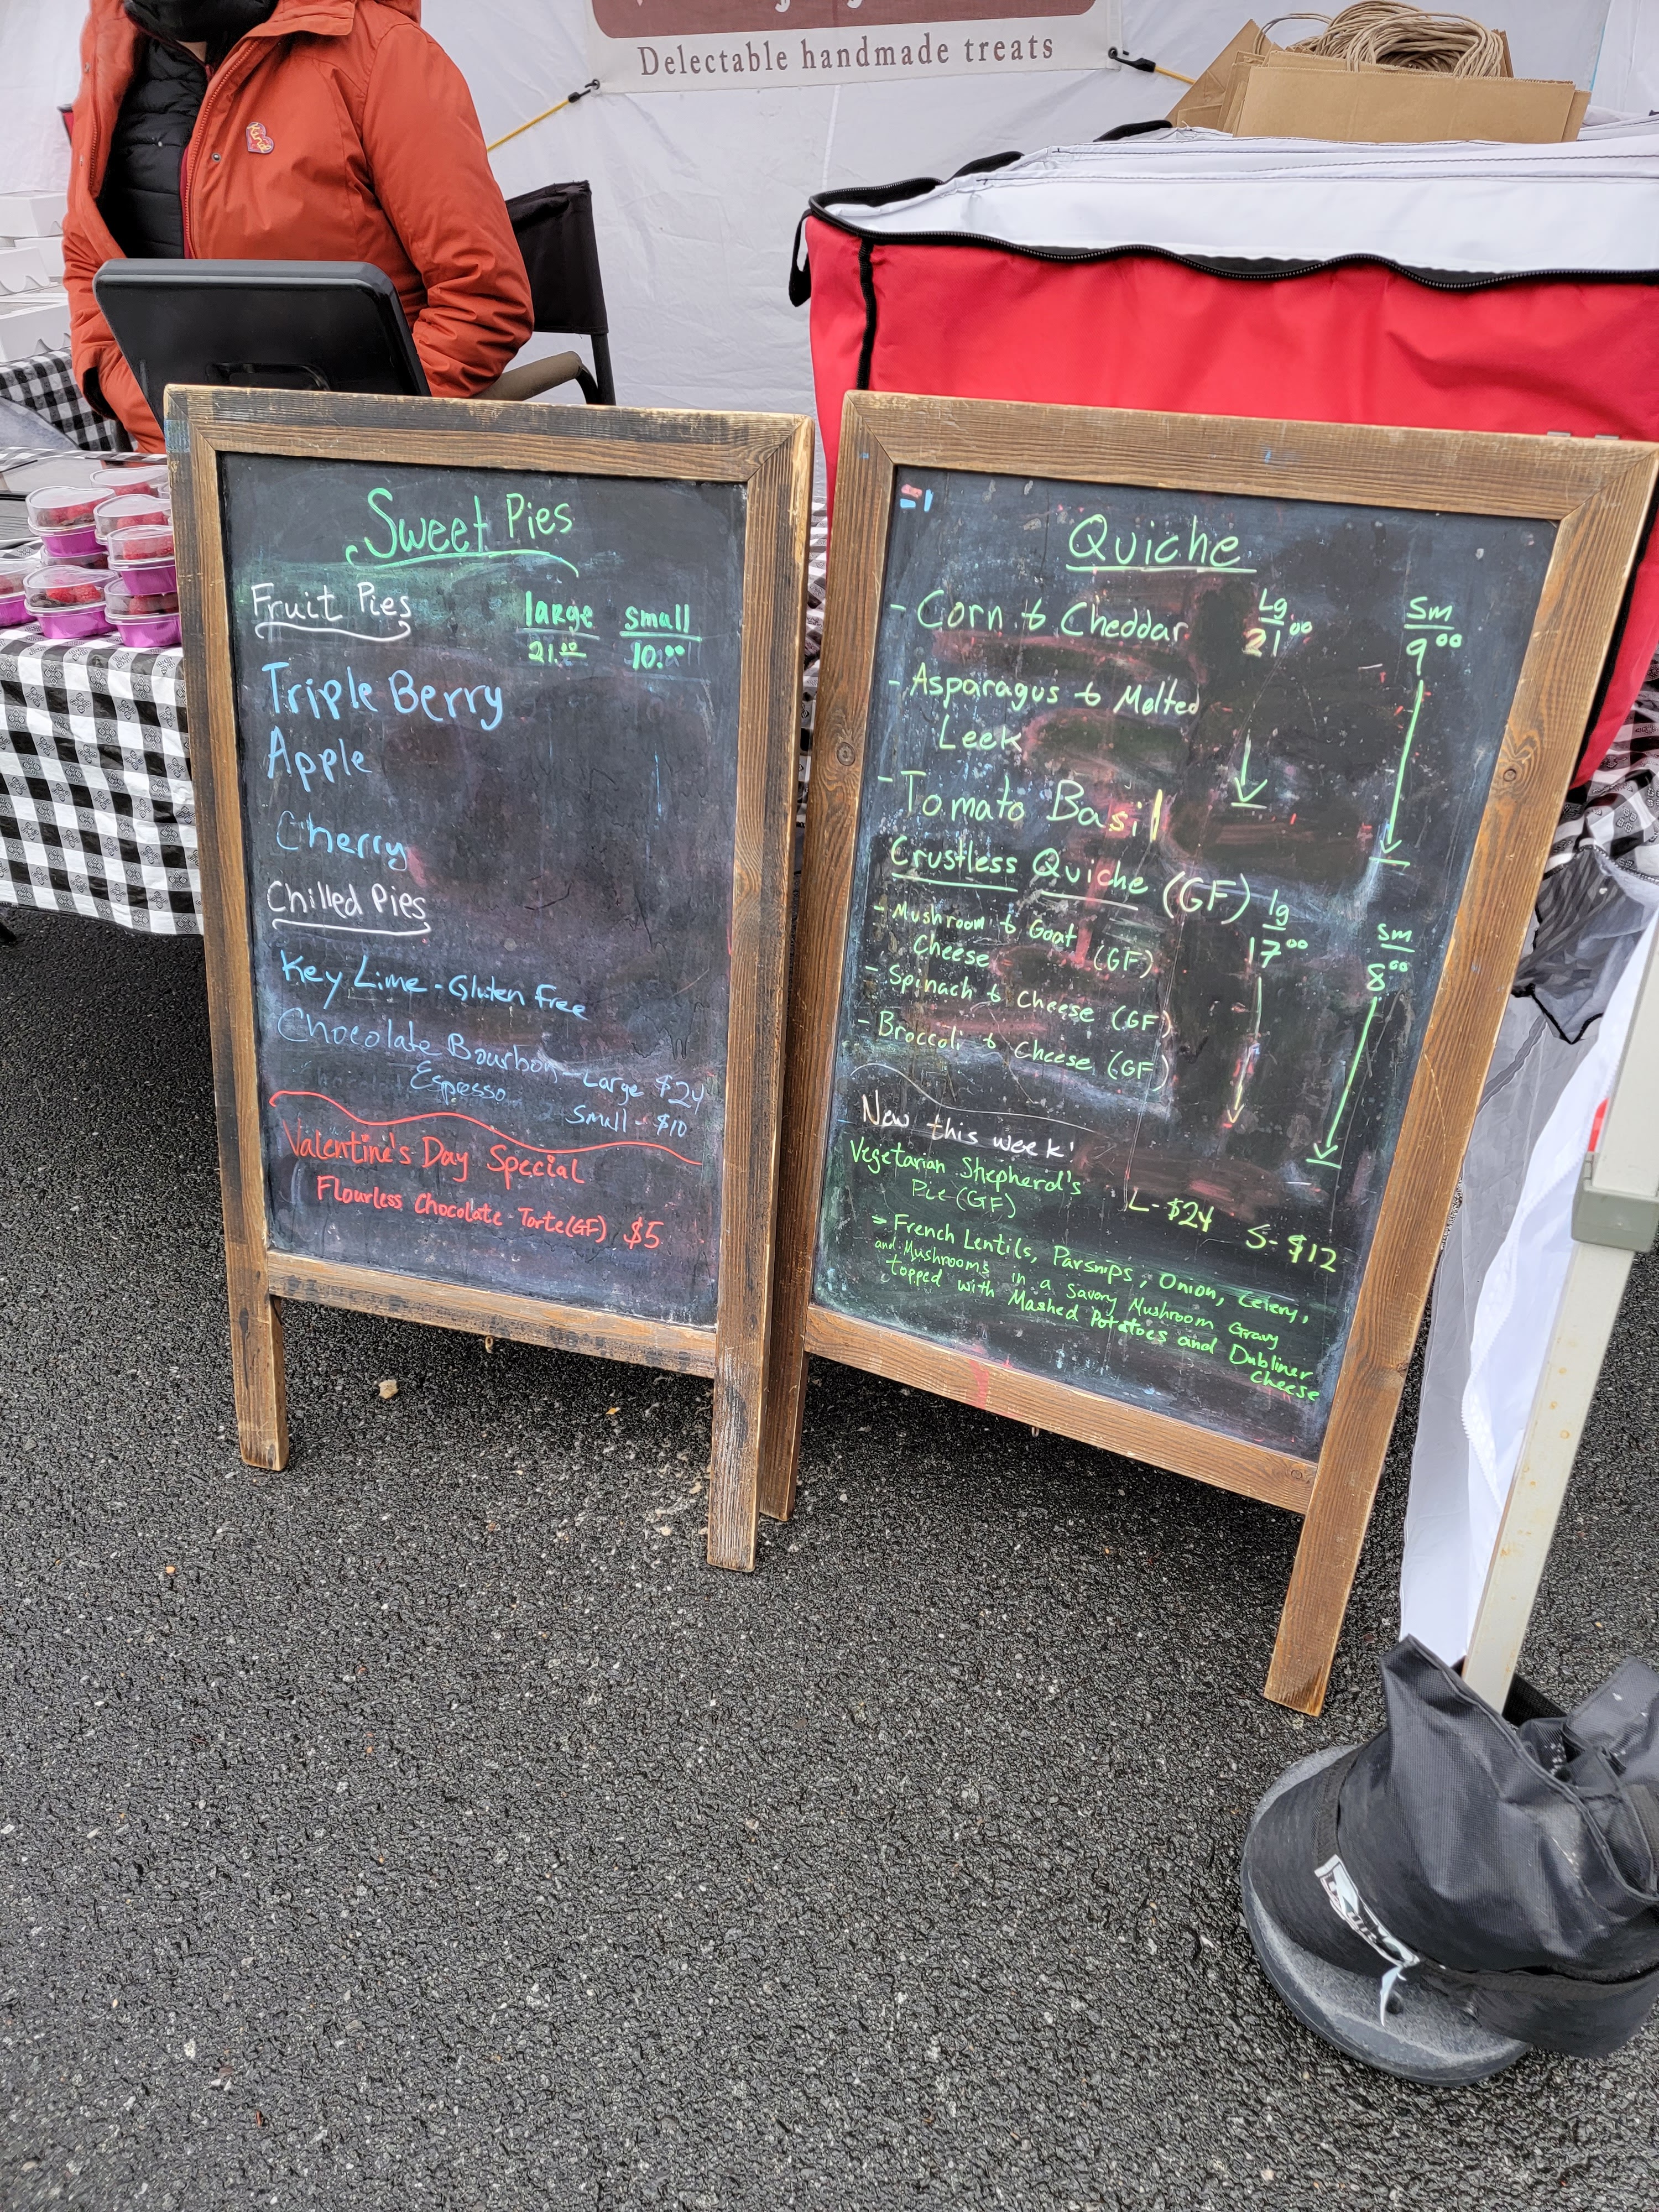 Delectable handmade treats
Sweet Pies
Fruit Pies large small
21.00 10.00
Triple Berry
Apple
Cherry
Chilled Pies
Key Lime - Gluten Free
Chocolate Bourbon - Large $24
Espresso Small - $10
Valentine's Day Special
Flourless Chocolate Torte (GF) $5
Quiche
- Corn & Cheddar Lg 21.00 Sm 9.00
- Asparagus & Melted
Leek
- Tomato Basil
Crustless Quiche (GF) lg Sm
- Mushroom & Goat 17.00 8.00
Cheese (GF)
- Spinach & Cheese (GF)
- Broccoli & Cheese (GF)
New this week!
Vegetarian Shepherd's
Pie (GF) L - $24 S - $12
→ French Lentils, Parsnips, Onion, Celery,
and Mushrooms in a Savory Mushroom Gravy
topped with Mashed Potatoes and Dubliner
Cheese